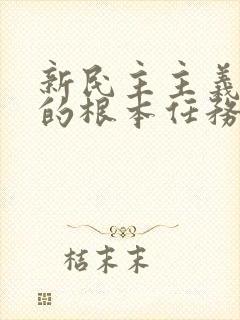 新民主主義
的根本任務
桔末末